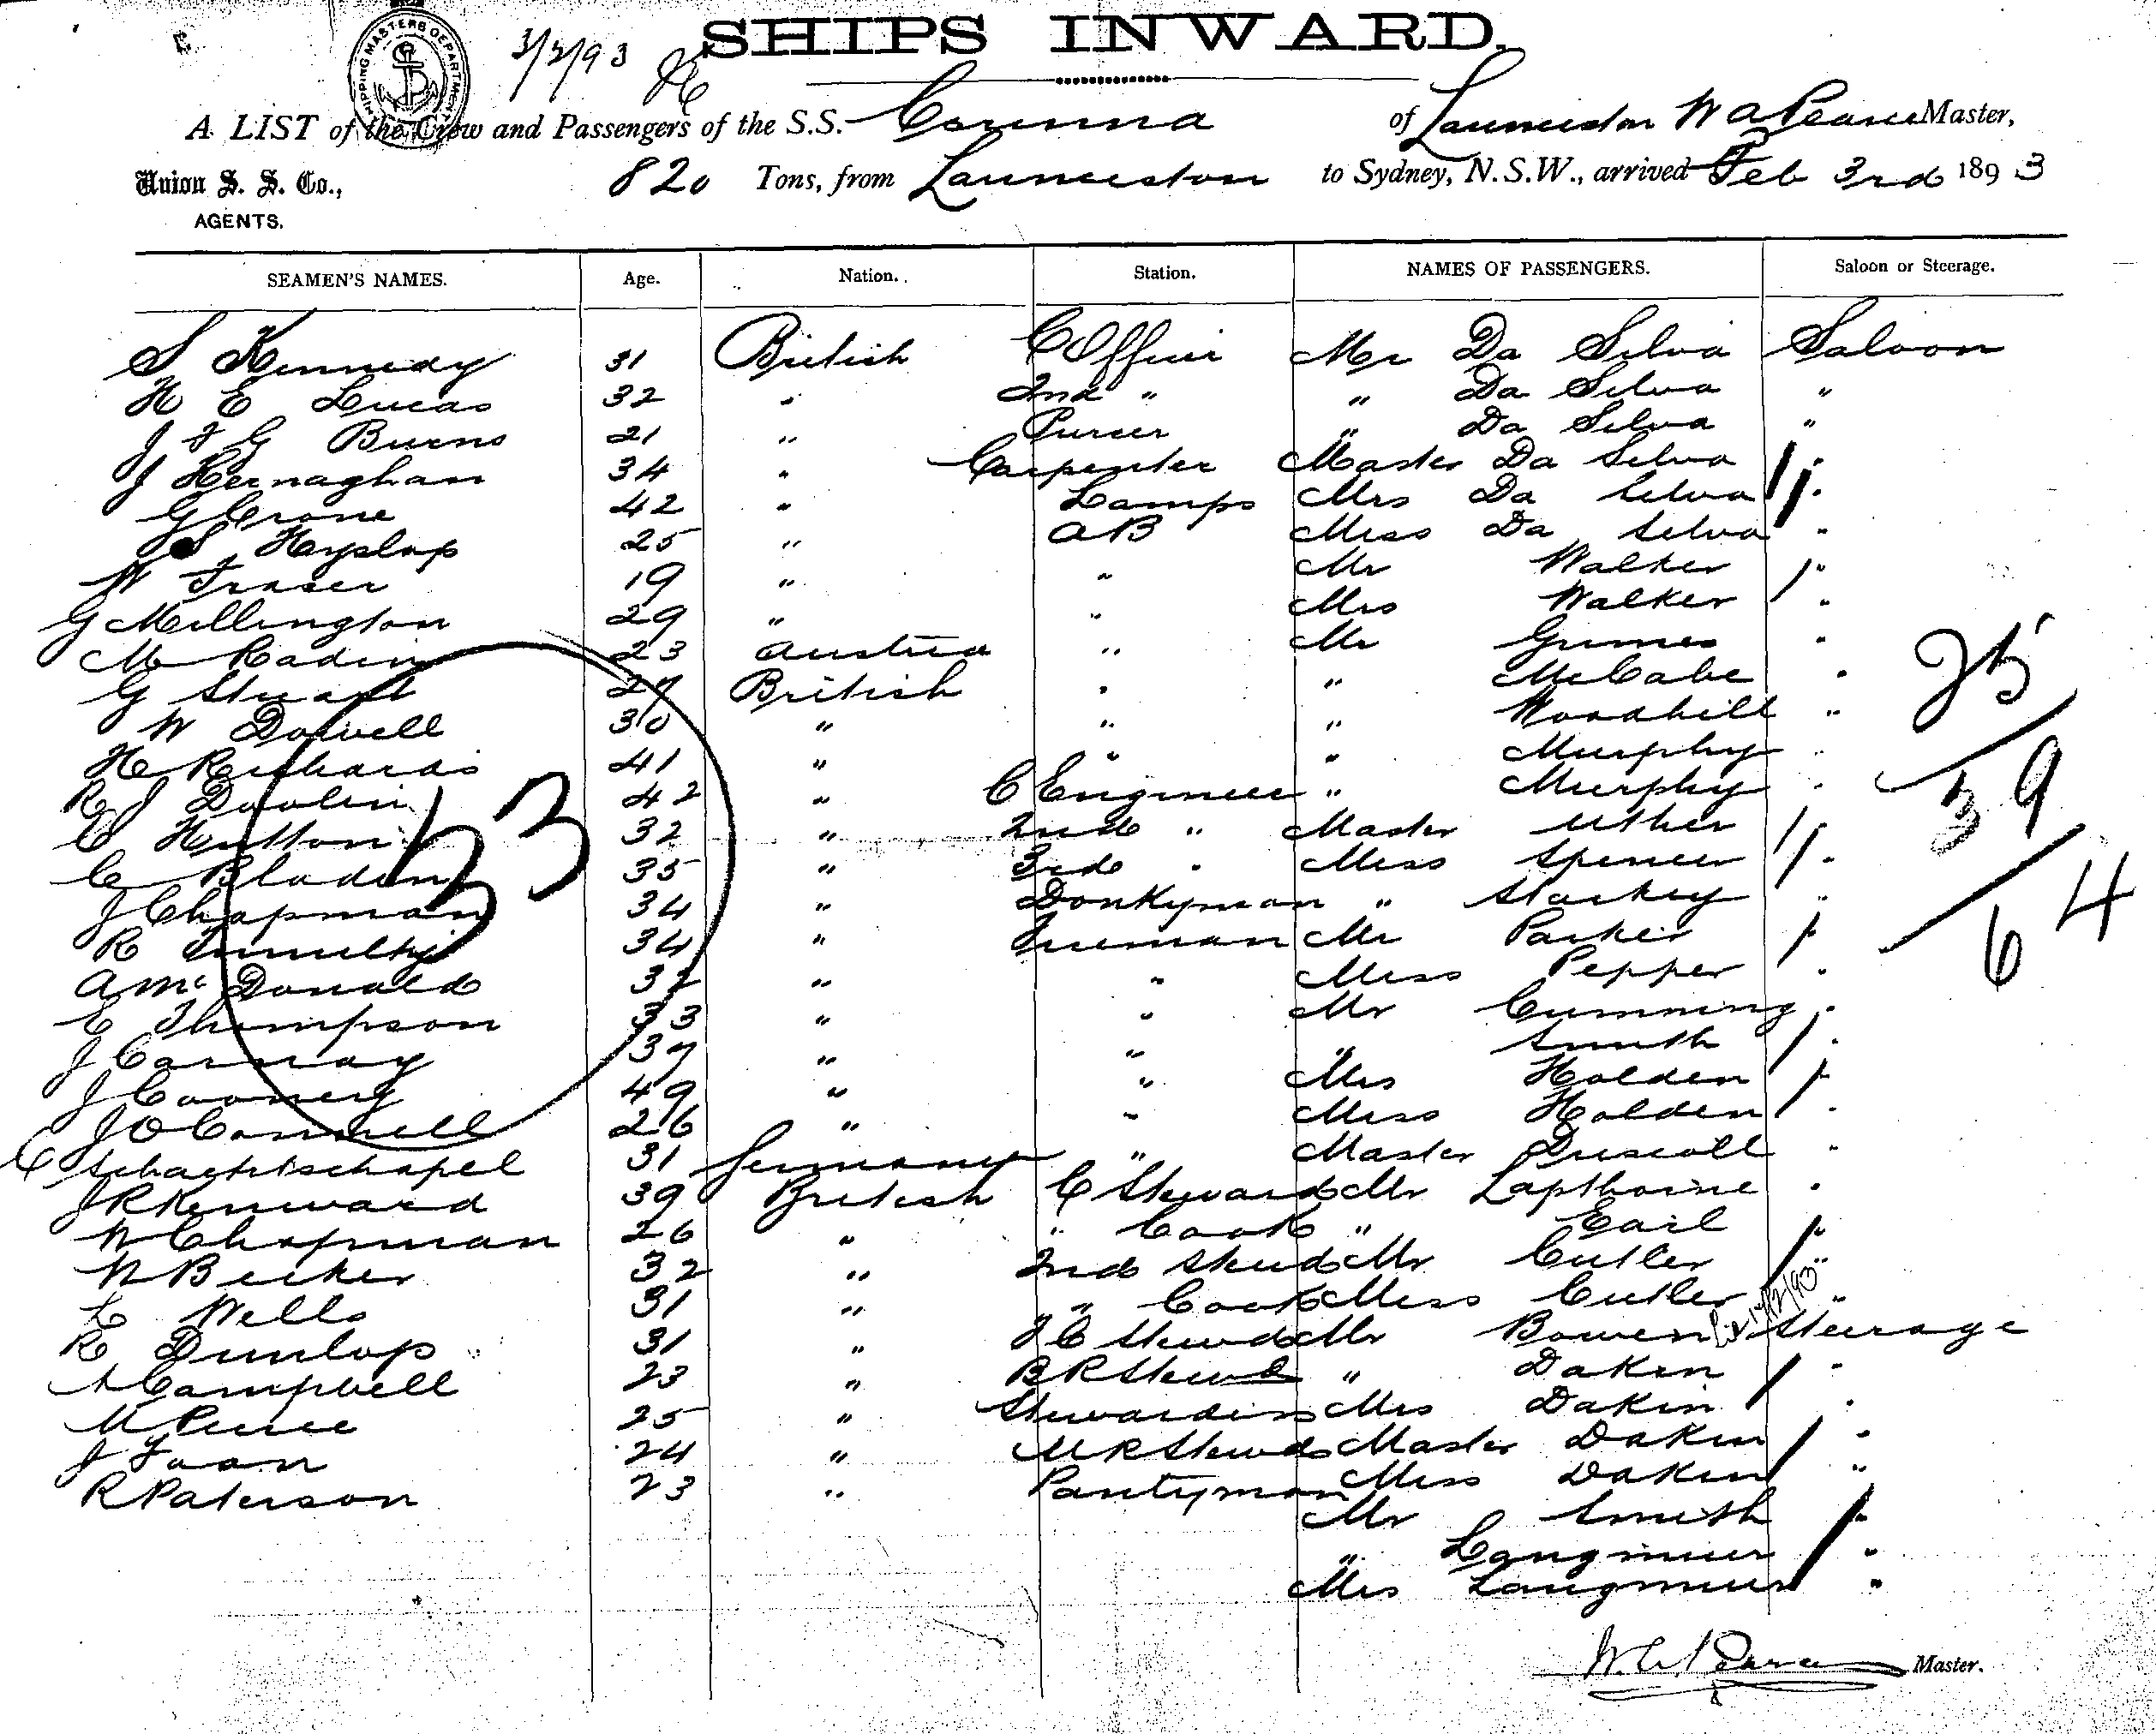 SHIPS INWARD.
SHIPPING MASTERS DEPARTMENT
3/2/93
A LIST of the Crew and Passengers of the S.S. Corinna of Launceston W A Pearce Master,
Union S. S. Co., 820 Tons, from Launceston to Sydney, N.S.W., arrived Feb 3rd 1893
AGENTS.
SEAMEN'S NAMES. Age. Nation. Station. NAMES OF PASSENGERS. Saloon or Steerage.
S Kennedy 31 British C Officer Mr Da Silva Saloon
H E Lucas 32 " 2nd " " Da Silva "
J F G Burns 21 " Purser " Da Silva "
J Hernaghan 34 " Carpenter Master Da Silva "
G Crone 42 " Lamps Mrs Da Silva "
S Hyslop 25 " AB Miss Da Silva "
W Fraser 19 " " Mr Walker "
G Millington 29 " " Mrs Walker "
M Radin 23 Austria " Mr Grimes "
G Stuart 27 British " " McCabe "
W Dowell 30 " " " Woodhill "
H Richards 41 " " " Murphy "
R J Dowlin 42 " C Engineer " Murphy "
C Hutton 32 " 2nd " Master Uther "
C Bladen 35 " 3rd " Miss Spencer "
J Chapman 34 " Donkyman " Starkey "
R 34 " Fireman Mr Parker "
A McDonald 32 " " Miss Pepper "
E Thompson 33 " " Mr Cumming "
J Carnay 37 " " " Smith "
J Coonery 49 " " Mrs Holden "
J O Connell 26 " " Miss Holden "
C Schachtschapel 31 Germany " Master Driscoll "
J R Kenward 39 British C Steward Mr Lapthorne "
W Chapman 26 " " Cook " Earl "
W Becker 32 " 2nd Stewd Mr Cutler "
L Wells 31 " " Cook Miss Cutler "
R Dunlop 31 " F C Stewd Mr Bowen Steerage
A Campbell 23 " B R Stewd " Dakin "
M Peirce 25 " Stewardess Mrs Dakin "
J Foon 24 " M R Stewd Master Dakin "
R Paterson 23 " Pantyman Miss Dakin "
Mr Smith "
" Langmuir "
Mrs Langmuir "
33
25
39
64
W. A. Pearce Master.